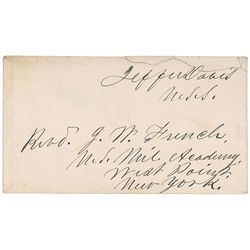 Jeffer Davis
U.S.S.
Revd. J. W. French,
U.S. Mil. Academy,
West Point,
New York.